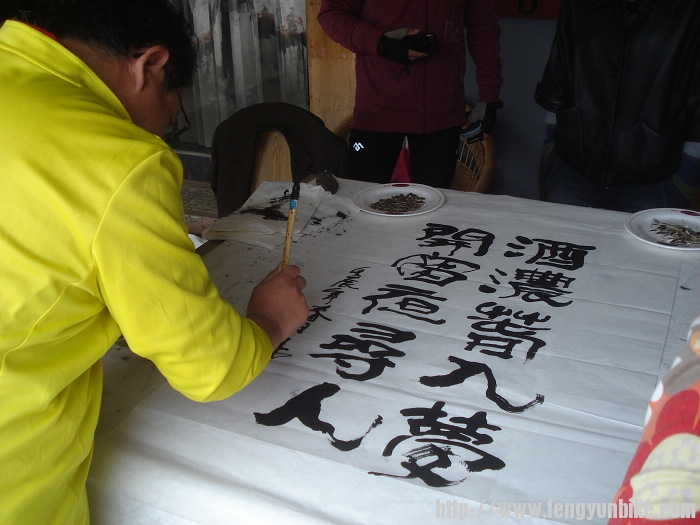 酒濃春入夢
開窗夜尋人
http://www.fengyunbike.com